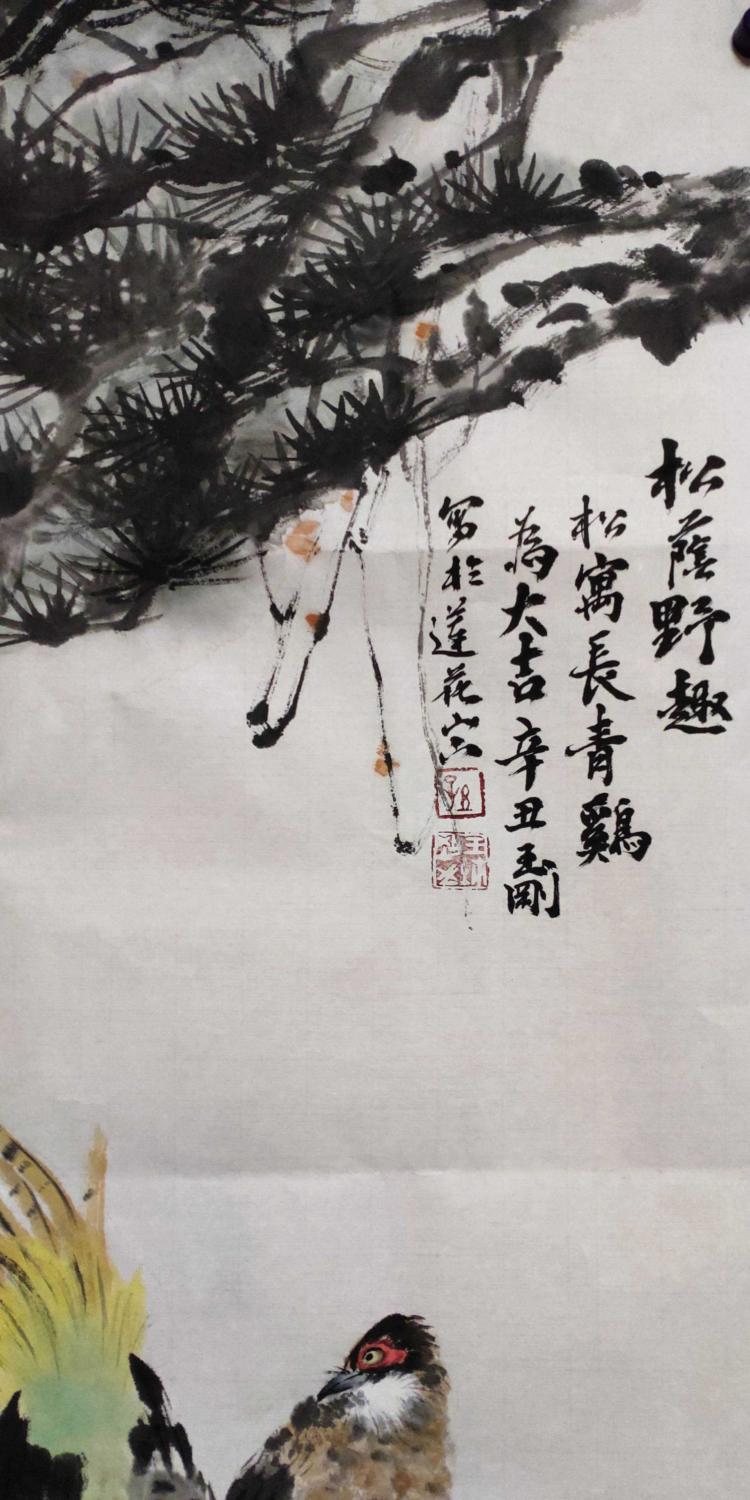 松蔭野趣
松寓長青鷄
為大吉辛丑玉剛
寫於蓮花